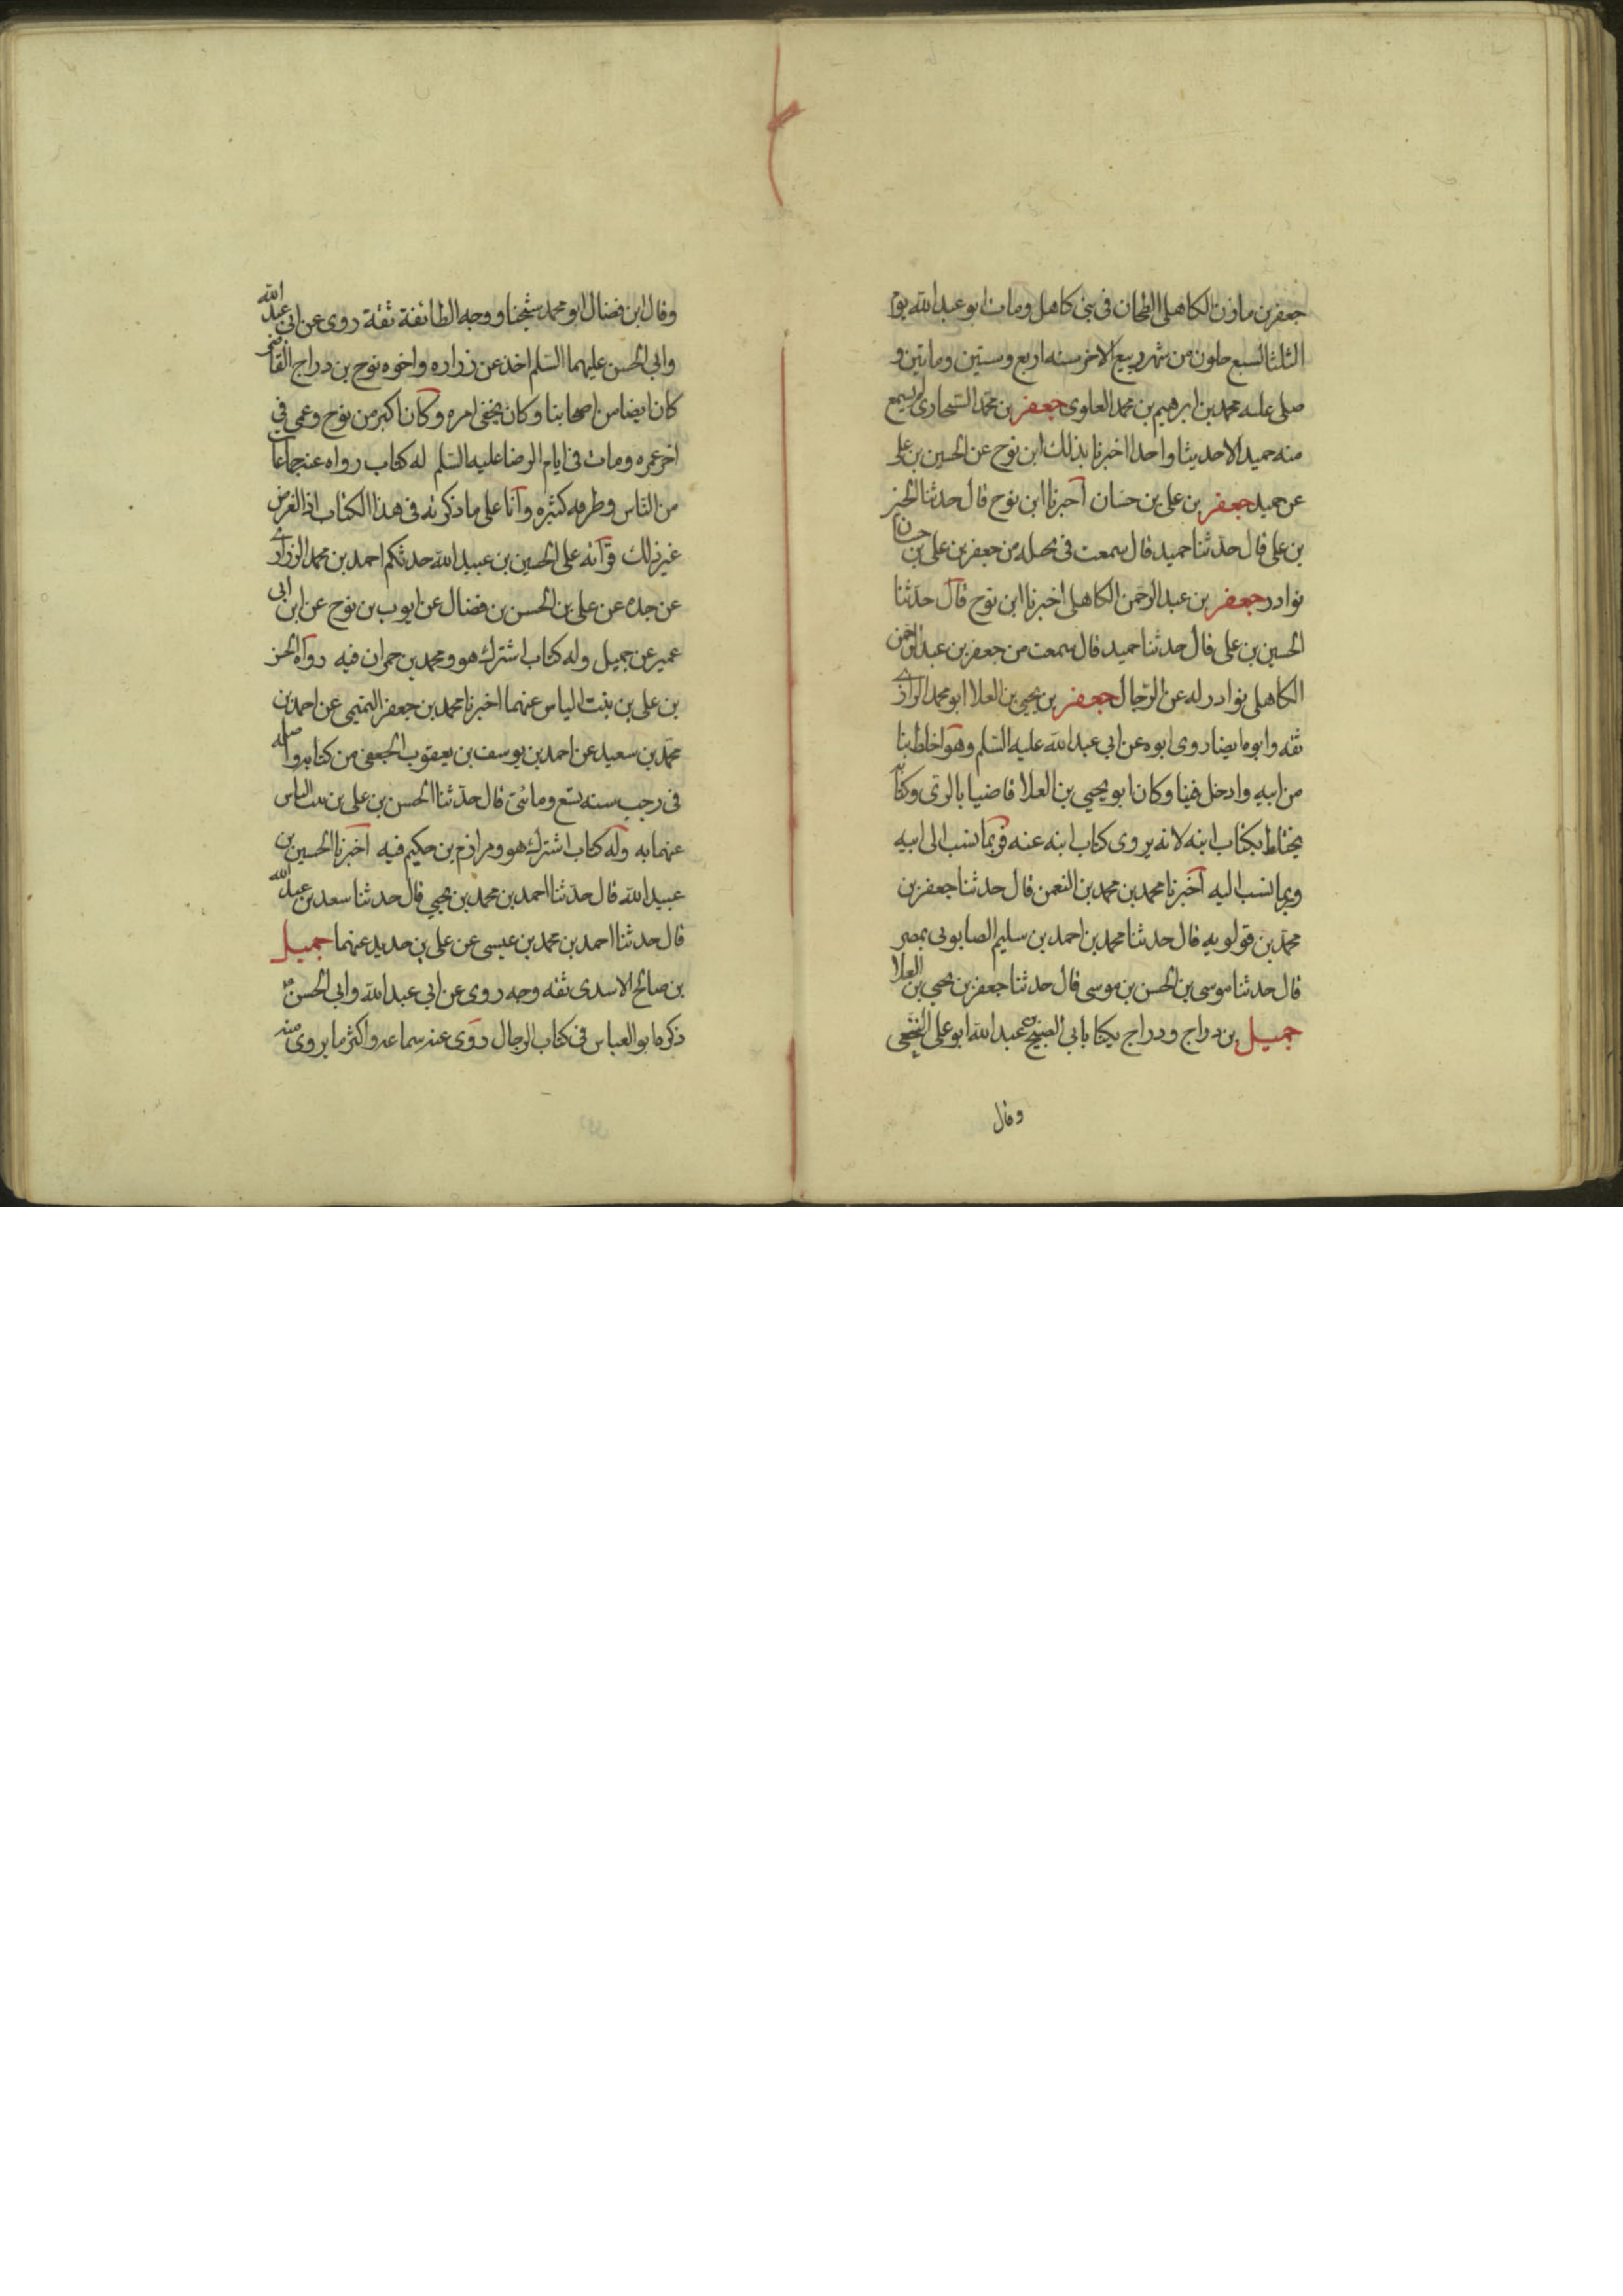 جعفر بن مازن الكاهلى الطحان فى بنى كاهل ومات ابو عبد الله يوم
الثلثا لسبع خلون من شهر ربيع الاخر سنه اربع وستين وماتين و
صلى عليه محمد بن ابرهيم بن محمد العلوى جعفر بن محمد السنجارى لم يسمع
منه حميد الا حديثا واحدا اخبرنا بذلك ابن نوح عن الحسين بن على
عن حميد جعفر بن على بن حسان اخبرنا ابن نوح قال حدثنا الحسين
بن على قال حدثنا حميد قال سمعت فى بجيله من جعفر بن على بن حسان
نوادر جعفر بن عبد الرحمن الكاهلى اخبرنا ابن نوح قال حدثنا
الحسين بن على قال حدثنا حميد قال سمعت من جعفر بن عبد الرحمن
الكاهلى نوادر له عن الرجال جعفر بن يحيى بن العلا ابو محمد الرازى
ثقه وابوه ايضا روى ابوه عن ابى عبد الله عليه السلم وهو اخلط بنا
من ابيه وادخل فينا وكان ابو يحيى بن العلا قاضيا بالرى وكتابه
يختلط بكتاب ابنه لانه يروى كتاب ابنه عنه فربما نسب الى ابيه
وربما نسب اليه اخبرنا محمد بن محمد بن النعمن قال حدثنا جعفر بن
محمد بن قولويه قال حدثنا محمد بن احمد بن سليم الصابونى بمصر
قال حدثنا موسى بن الحسن بن موسى قال حدثنا جعفر بن يحيى بن العلا
جميل بن دراج ودراج يكنا بابى الصبيح بن عبد الله ابو على النخعى
وقال
وقال ابن فضال ابو محمد شيخنا ووجه الطائفة ثقة روى عن ابى عبد الله
وابى الحسن عليهما السلم اخذ عن زراره واخوه نوح بن دراج القاضى
كان ايضا من اصحابنا وكان يخفى امره وكان اكبر من نوح وعمى فى
اخر عمره ومات فى ايام الرضا عليه السلم له كتاب رواه عنه جماعات
من الناس وطرقه كثيره وانا على ما ذكرته فى هذا الكتاب اذ الغرض
غير ذلك قرآته على الحسين بن عبيد الله حدثكم احمد بن محمد الزرارى
عن جده عن على بن الحسن بن فضال عن ايوب بن نوح عن ابن ابى
عمير عن جميل وله كتاب اشترك هو ومحمد بن حمران فيه رواه الحسن
بن على بن بنت الياس عنهما اخبرنا محمد بن جعفر التميمى عن احمد بن
محمد بن سعيد عن احمد بن يوسف بن يعقوب الجعفى من كتابه واصله
فى رجب سنه تسع ومائتى قال حدثنا الحسن بن على بن بنت الياس
عنهما به وله كتاب اشترك هو ومرازم بن حكيم فيه اخبرنا الحسين بن
عبيد الله قال حدثنا احمد بن محمد بن يحيى قال حدثنا سعد بن عبد الله
قال حدثنا احمد بن محمد بن عيسى عن على بن حديد عنهما جميل
بن صالح الاسدى ثقه وجه روى عن ابى عبد الله وابى الحسن
ذكره ابو العباس فى كتاب الرجال روى عنه سماعه واكثر ما يروى منه